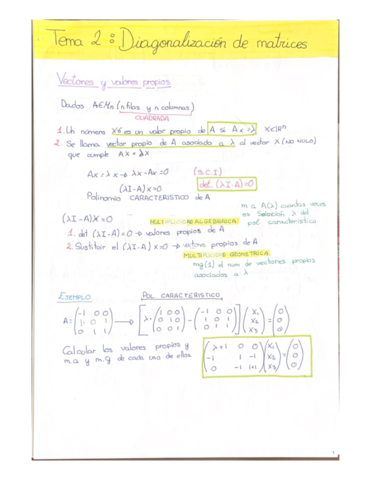 Tema 2: Diagonalización de matrices
Vectores y valores propios
Dados A∈Mn (n filas y n columnas)
CUADRADA
1. Un número λ∈ es un valor propio de A si Ax=λx X∈ℝⁿ
2. Se llama vector propio de A asociado a λ al vector X (NO NULO)
que cumple AX=λX
Ax=λx → λx-Ax=0 (S.C.I)
(λI-A)x=0 det (λI-A)=0
Polinomio CARACTERISTICO de A
m.a A(λ) cuantas veces
es solución λ del
pol. característico
(λI-A)X=0 MULTIPLICIDAD ALGEBRAICA:
1. det (λI-A)=0 → valores propios de A
2. Sustituir el (λI-A)x=0 → vectores propios de A
MULTIPLICIDAD GEOMETRICA:
mg(λ) el num de vectores propios
asociados a λ
EJEMPLO POL. CARACTERISTICO
A=(-1 0 0 / 1 0 1 / 0 1 1) → [λ·(1 0 0 / 0 1 0 / 0 0 1) - (-1 0 0 / 1 0 1 / 0 1 1)] (X1 / X2 / X3) = (0 / 0 / 0)
Calcular los valores propios y
m.a. y m.g de cada uno de ellos.
(λ+1 0 0 / -1 λ -1 / 0 -1 λ-1)(X1 / X2 / X3) = (0 / 0 / 0)